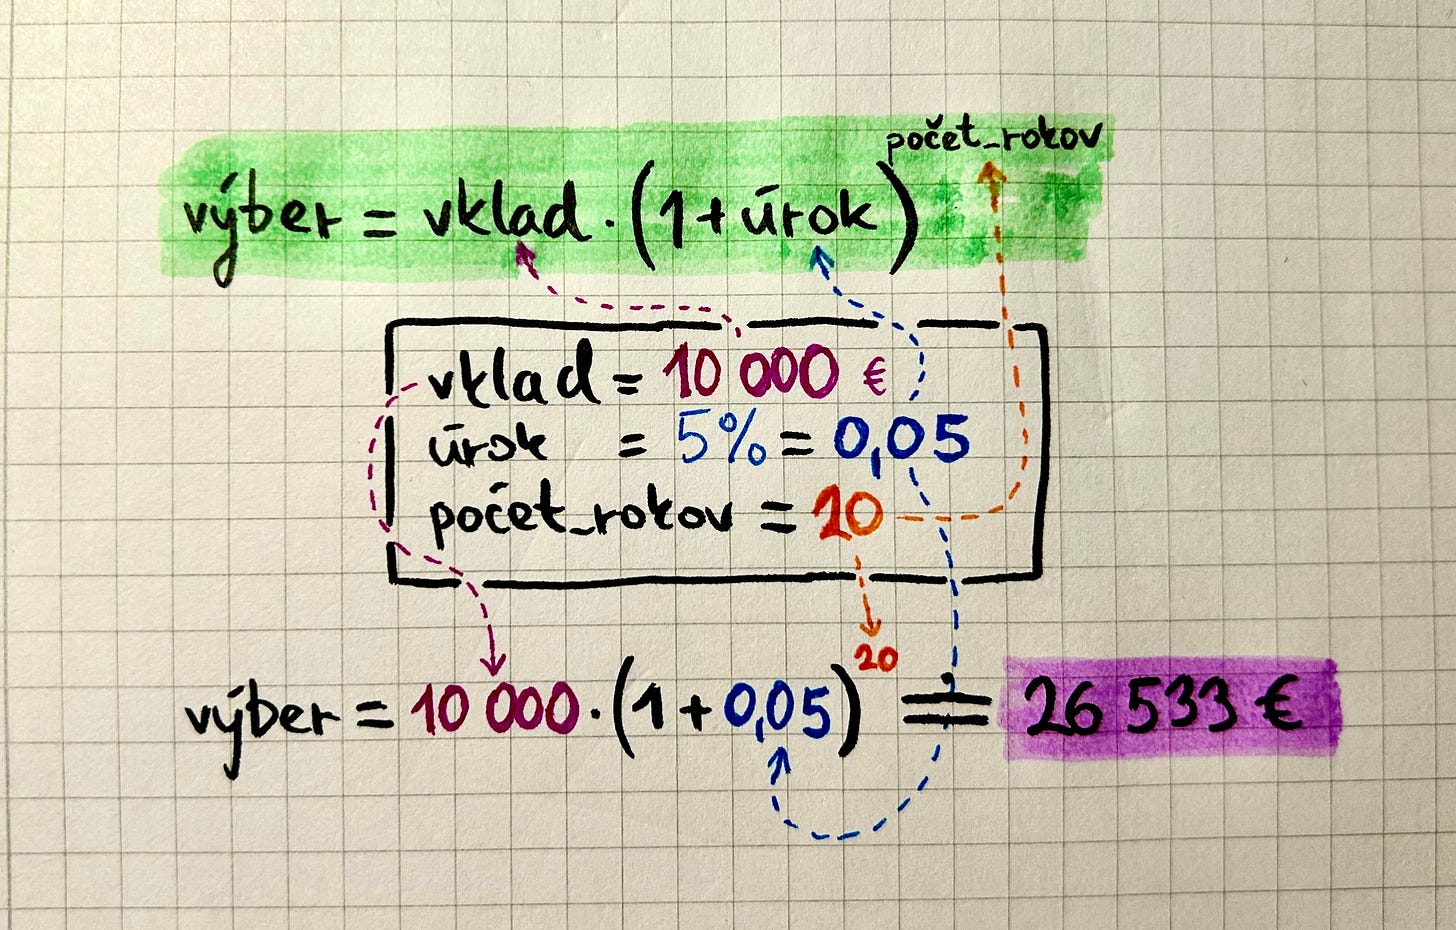 výber = vklad · (1 + úrok)^počet_rokov
vklad = 10 000 €
úrok = 5% = 0,05
počet_rokov = 20
výber = 10 000 · (1 + 0,05)^20 = 26 533 €